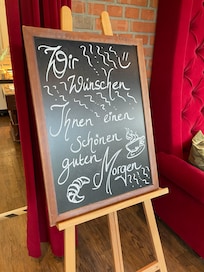 Wir
Wünschen
Ihnen einen
schönen
guten
Morgen